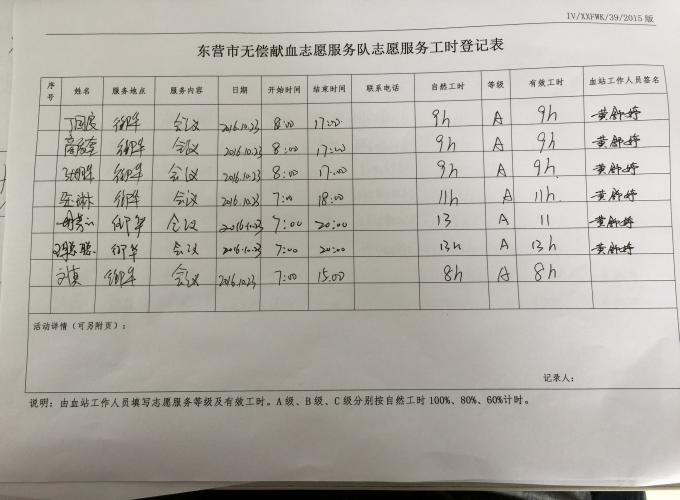 IV/XXFWK/39/2015 版
东营市无偿献血志愿服务队志愿服务工时登记表
序号 姓名 服务地点 服务内容 日期 开始时间 结束时间 联系电话 自然工时 等级 有效工时 血站工作人员签名
御华 会议 2016.10.23 8:00 17:00 9h A 9h 黄舒婷
御华 会议 2016.10.23 8:00 17:00 9h A 9h 黄舒婷
御华 会议 2016.10.23 8:00 17:00 9h A 9h. 黄舒婷
御华 会议 2016.10.23 7:00 18:00 11h A 11h. 黄舒婷
御华 会议 2016.10.23 7:00 20:00 13 A 11 黄舒婷
御华 会议 2016.10.23 7:00 20:00 13h A 13h 黄舒婷
御华 会议 2016.10.23 7:00 15:00 8h A 8h
活动详情（可另附页）：
记录人：
说明：由血站工作人员填写志愿服务等级及有效工时。A 级、B 级、C 级分别按自然工时 100%、80%、60%计时。